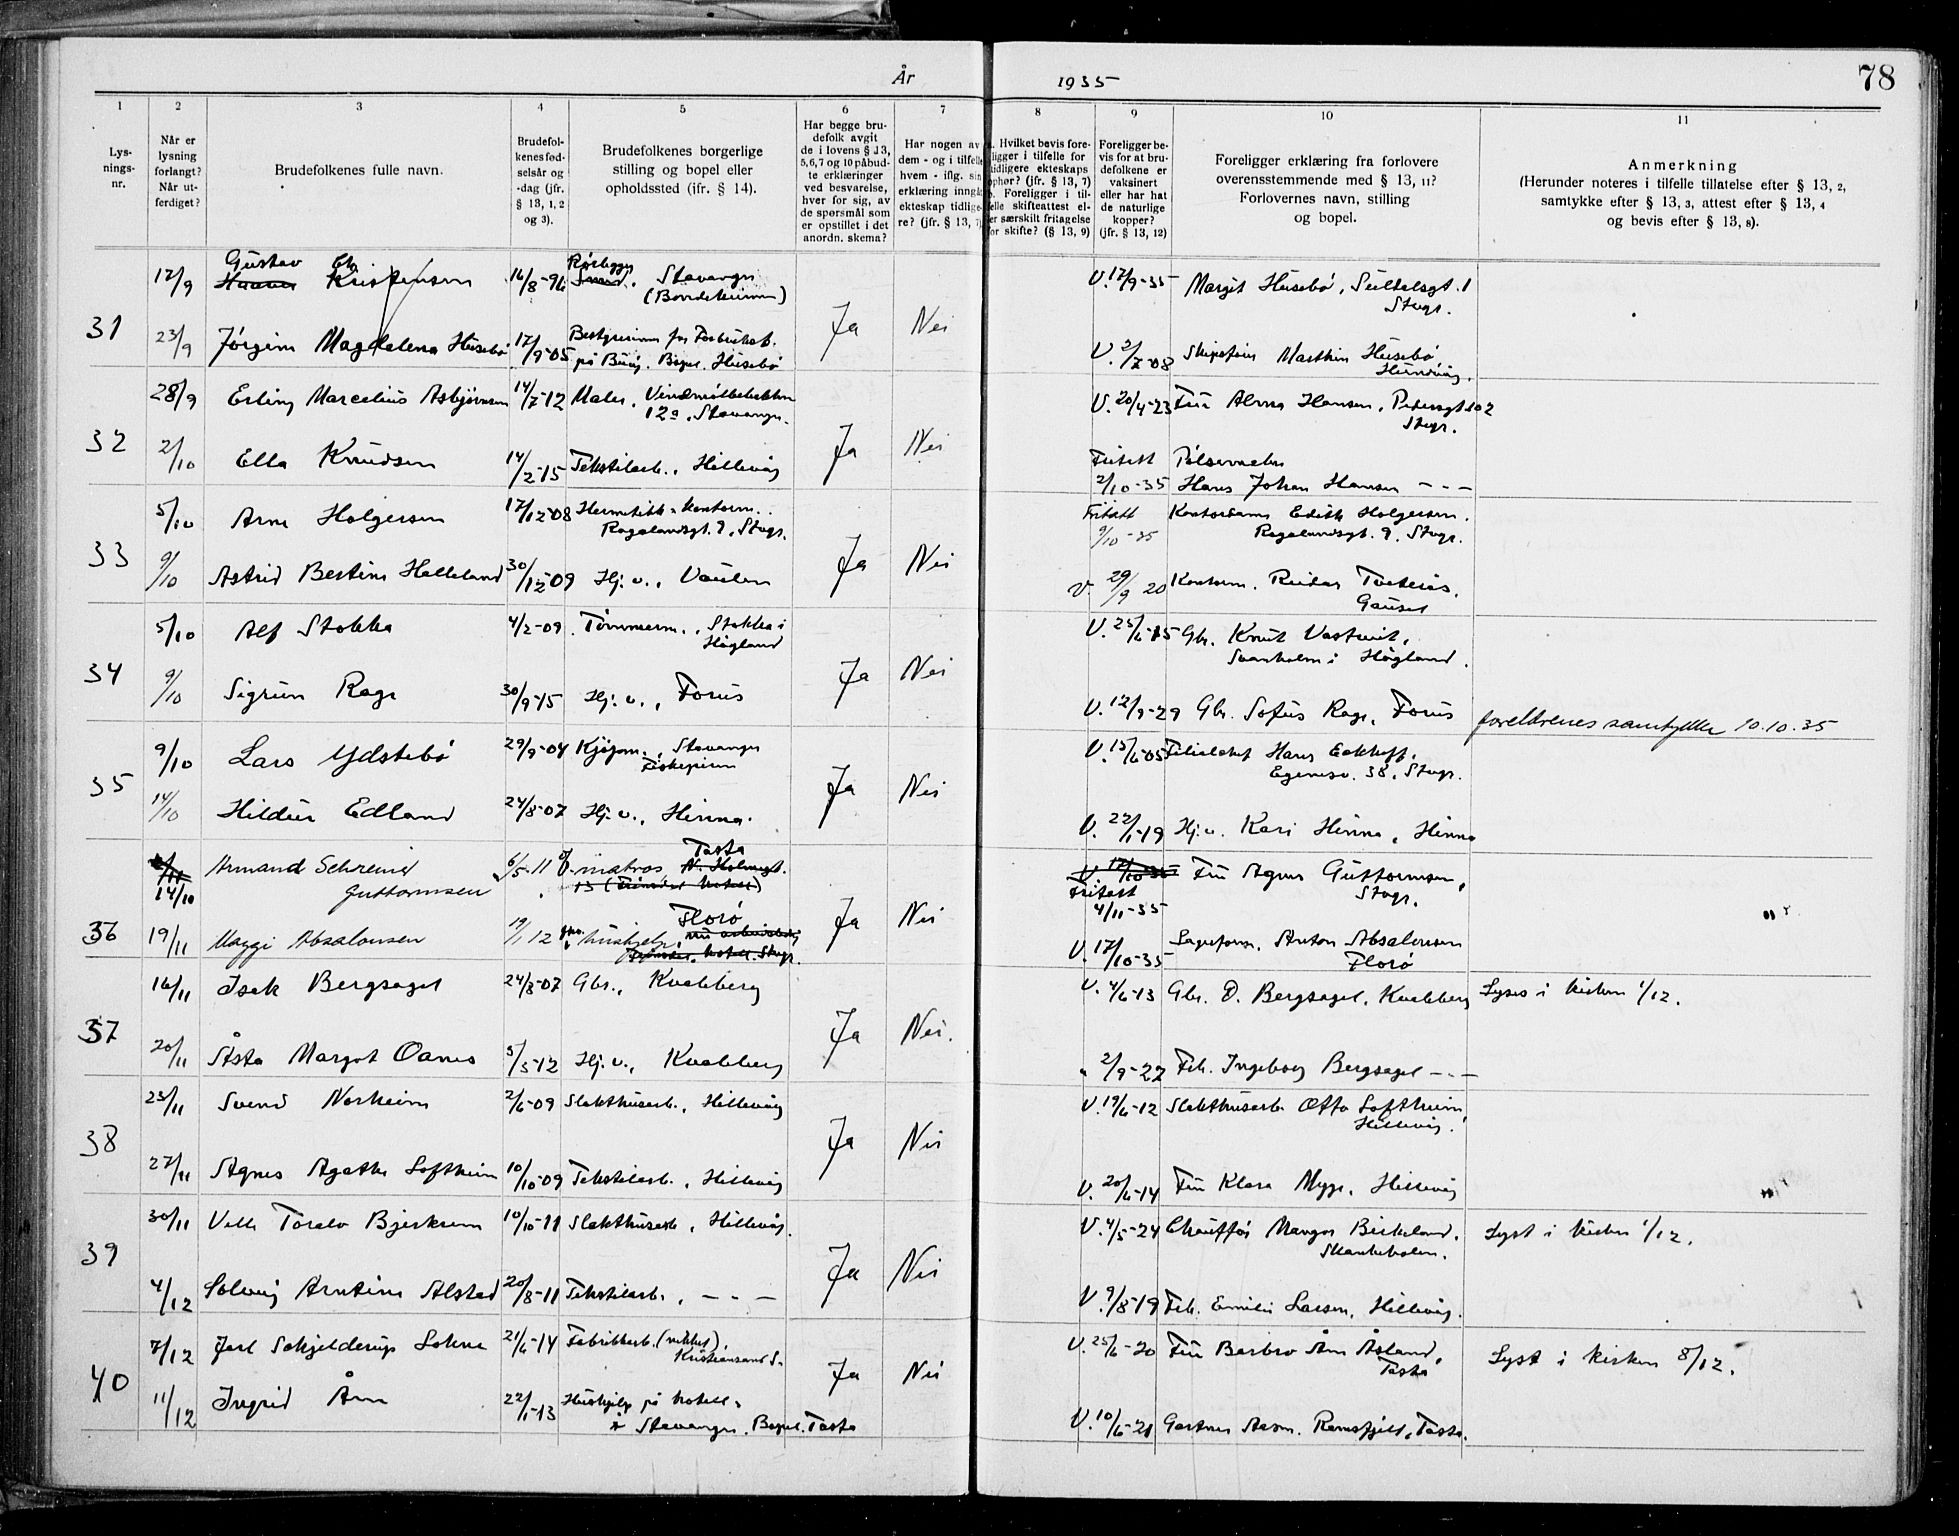 År 1935
78
1 2 3 4 5 6 7 8 9 10 11
Lys-
nings-
nr.
Når er
lysning
forlangt?
Når ut-
ferdiget?
Brudefolkenes fulle navn.
Brudefol-
kenes fød-
selsår og
-dag (jfr.
§ 13, 1, 2
og 3).
Brudefolkenes borgerlige
stilling og bopel eller
opholdssted (jfr. § 14).
Har begge bru-
defolk avgit
de i lovens § 13,
5,6,7 og 10 påbud-
te erklæringer
ved besvarelse,
hver for sig, av
de spørsmål som
er opstillet i det
anordn. skema?
Har nogen av
dem - og i tilfelle
hvem - iflg. sin
erklæring inngåt
ekteskap tidlige-
re? (jfr. § 13, 7)
a. Hvilket bevis fore-
ligger i tilfelle for
tidligere ekteskaps
ophør? (jfr. § 13, 7)
b. Foreligger i til-
felle skifteattest el-
er særskilt fritagelse
for skifte? (§ 13, 9)
Foreligger be-
vis for at bru-
defolkene er
vaksinert
eller har hat
de naturlige
kopper?
(jfr. § 13, 12)
Foreligger erklæring fra forlovere
overensstemmende med § 13, 11?
Forlovernes navn, stilling
og bopel.
Anmerkning
(Herunder noteres i tilfelle tillatelse efter § 13, 2,
samtykke efter § 13, 3, attest efter § 13, 4
og bevis efter § 13, 8).
31
17/9 Gustav Chr. Kristensen 16/8-96 Rørlegger, Stavanger V. 17/9-35 Margit Husebø,
Stvgr.
23/9 Jørgine Magdalena Husebø 17/9-05 Bestyrerinne for
på Buøy. Bopel. Husebø Ja Nei V. 2/7-08 Marthin Husebø
Hundvåg.
32
28/9 Erling Marcelius Asbjørnsen 14/7-12 Maler, Vindmøllebakken
12a, Stavanger. V. 20/4-23 Fru Alma Hansen, Pedersgt. 102
Stvgr.
2/10 Ella Knudsen 14/2-15 Tekstilarb., Hillevåg Ja Nei Fritatt
2/10-35 Pølsemaker
Hans Johan Hansen - - -
33
5/10 Arne Holgersen 17/12-08 Hermetikk-kontorm.
Rogalandsgt. 9, Stvgr. Fritatt
9/10-35 Kontordame Edith Holgersen.
Rogalandsgt. 9, Stvgr.
9/10 Astrid Bertine Helleland 30/12-09 Hj. v., Vaulen Ja Nei V. 29/9 20 Kontorm. Reidar Tveterås,
Gausel
34
5/10 Alf Stokka 4/2-09 Tømmerm., Stokka i
Høgland V. 25/6-15 Gbr. Knut
Svanholm i Høgland.
9/10 Sigrun Rage 30/9-15 Hj. v., Forus Ja Nei V. 12/9-29 Gbr. Sofus Rage, Forus foreldrenes samtykke 10.10.35
35
9/10 Lars Ydstebø 29/9-04 Kjøpm., Stavanger
Fiskepiren V. 15/6-05 Filialchef Hans Eckhoff,
Egenesv. 38, Stvgr.
14/10 Hildur Edland 24/8-07 Hj. v., Hinna. Ja Nei V. 22/1-19 Hj. v. Kari Hinna, Hinna
36
14/10 Armand Schreiner
Guttormsen 6/5-11 matros Tasta Fritatt
4/11-35 Fru Agnes Guttormsen,
Stvgr.
19/11 Maggi Absalonsen 19/1 12 hushjelp, Florø Ja Nei V. 17/10-35 Anton Absalonsen
Florø
37
16/11 Isak Bergsagel 24/8-07 Gbr., Kvaleberg V. 4/6-13 Gbr. O. Bergsagel, Kvaleberg Lyses i kirken 1/12.
20/11 Åsta Margot Oanes 5/5-12 Hj. v., Kvaleberg Ja Nei. " 2/9-27 Frk. Ingeborg Bergsagel - - -
38
23/11 Svend Norheim 2/6-09 Slakthusarb., Hillevåg V. 19/6-12 Slakthusarb. Otto Loftheim,
Hillevåg.
27/11 Agnes Agathe Loftheim 10/10-09 Tekstilarb., Hillevåg Ja Nei V. 20/6-14 Fru Klara Myge, Hillevåg
39
30/11 Toralv Bjerkreim 10/10-11 Slakthusarb., Hillevåg. V. 4/5-24 Chauffør Mangor Birkeland,
Skankeholen. Lyst i kirken 1/12.
4/12 Solveig Arntine Alsted 20/8-11 Tekstilarb., - - - Ja Nei V. 9/8-19 Frk. Emilie Larsen, Hillevåg.
40
7/12 Jarl Schjelderup Lohne 21/6-14 Fabrikkarb.
Kristiansand S. V. 25/6-20 Fru Barbro Åm Åsland,
Tasta Lyst i kirken 8/12.
11/12 Ingrid Åm 22/1-13 Hushjelp på hotell
i Stavanger. Bopel. Tasta Ja Nei V. 10/6-21 Gartner Ramsfjell, Tasta.